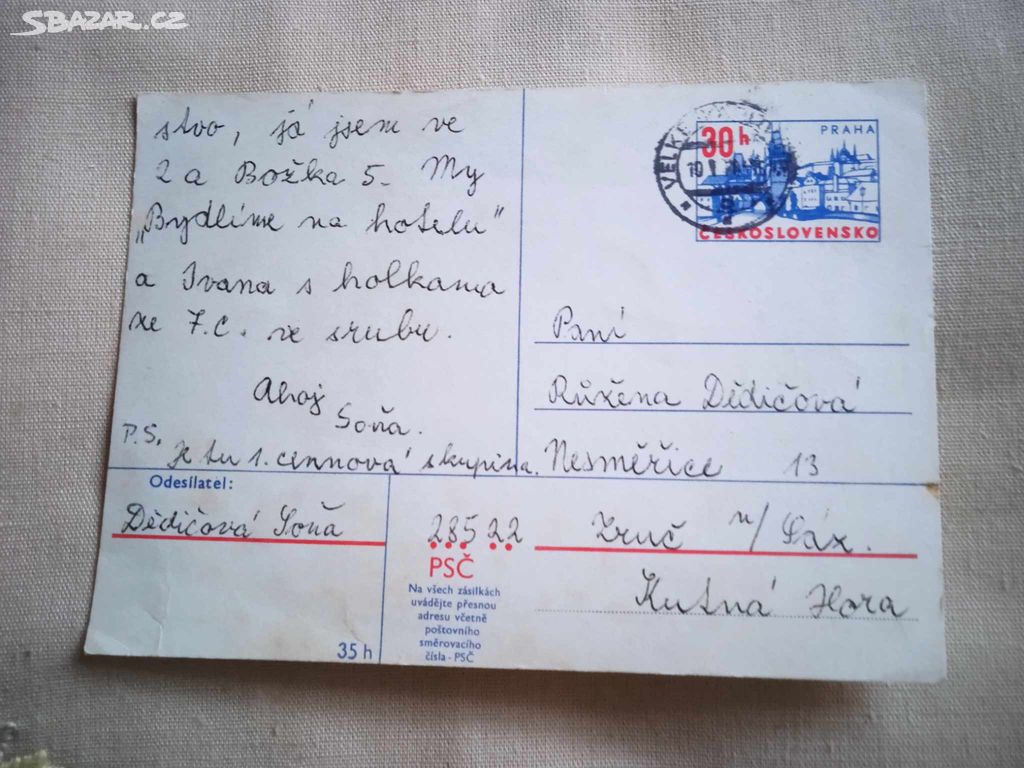 SBAZAR.CZ
stvo, já jsem ve
2 a Božka 5. My
„Bydlíme na hotelu"
a Ivana s holkama
ze 7.C. ve srubu.
Ahoj
Soňa.
P.S.
Je tu 1. cennová skupina.
Odesílatel:
Dědičová Soňa
35 h
30 h
PRAHA
ČESKOSLOVENSKO
VELKÉ
Paní
Růžena Dědičová
Nesměřice 13
285 22 Zruč n/Sáz.
PSČ
Kutná Hora
Na všech zásilkách
uvádějte přesnou
adresu včetně
poštovního
směrovacího
čísla - PSČ